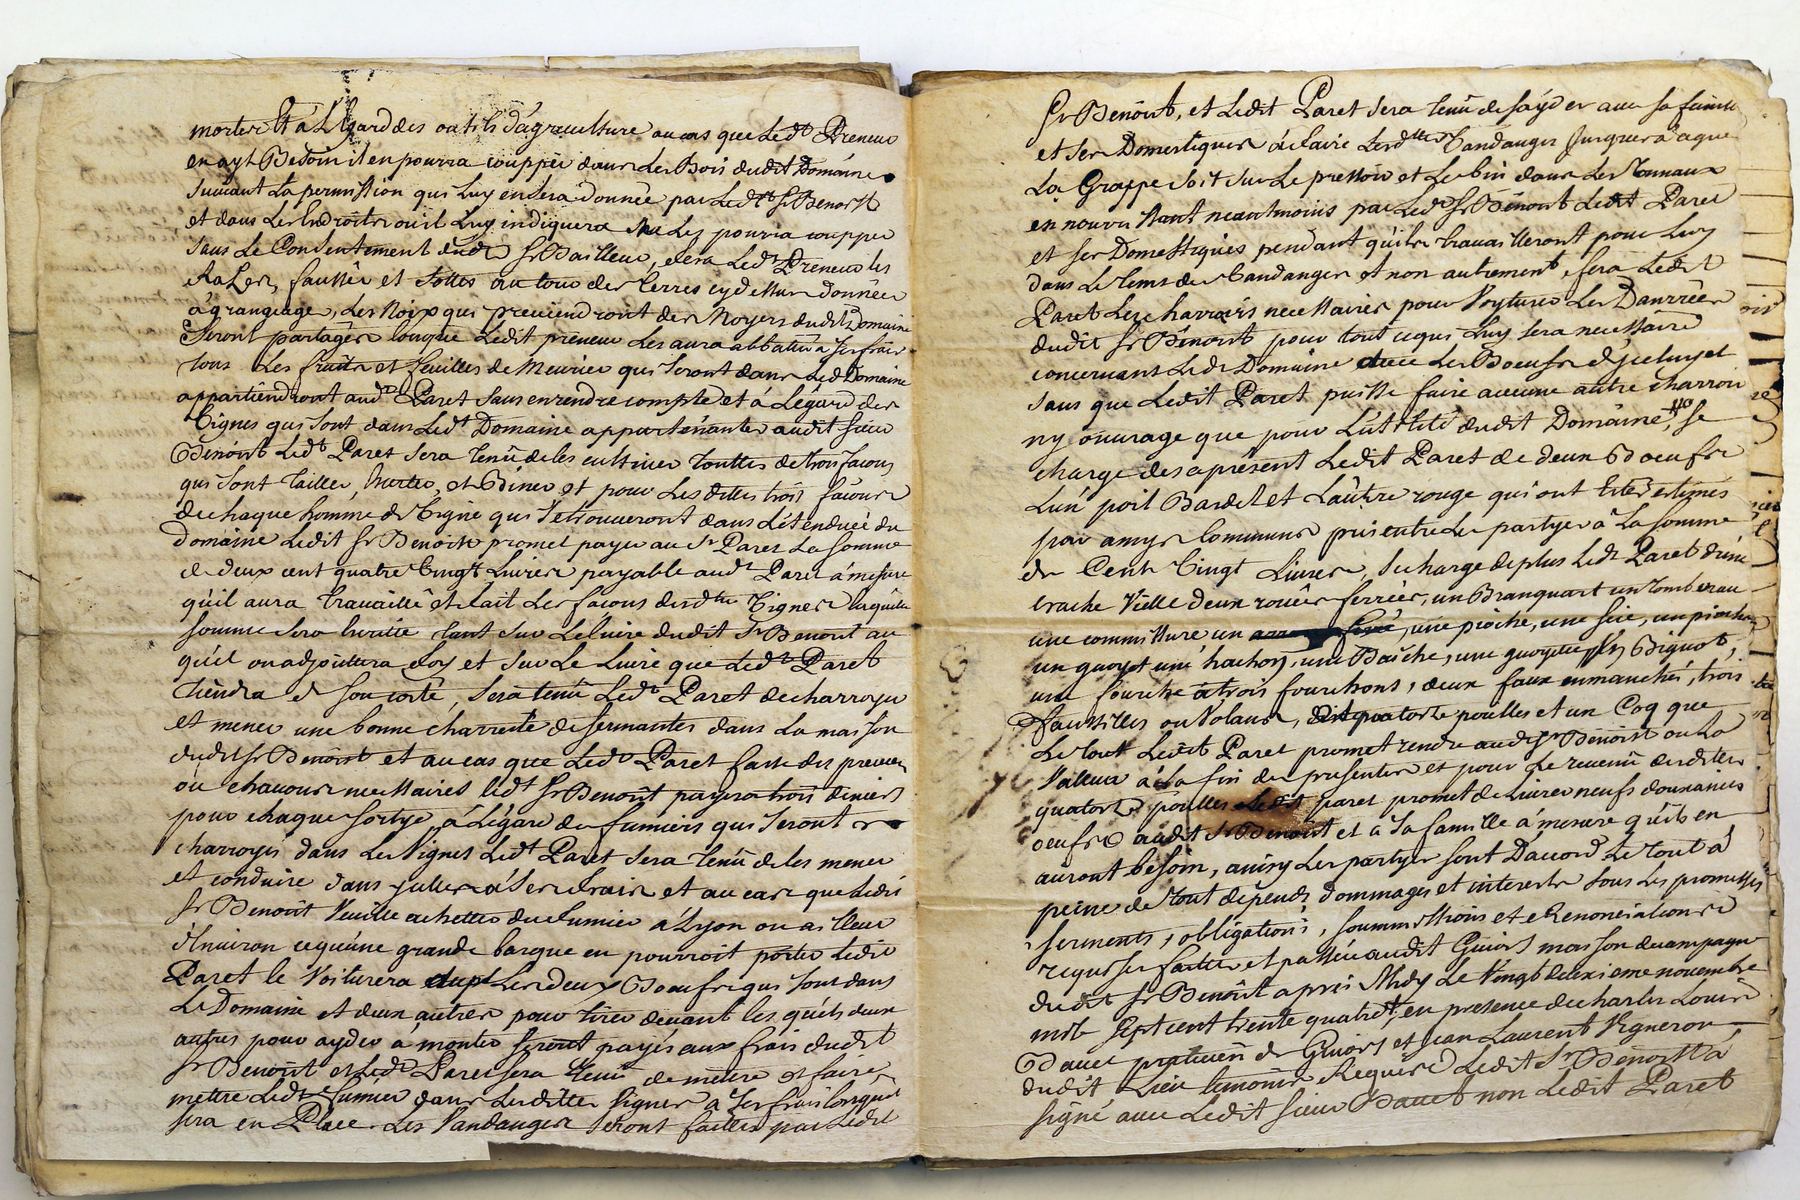 morter Et à L'Egard des outils d'agreculture au cas que Led.t Preneur
en ayt Besoin il en pourra couppér dans les Bois dudit Domaine
suivant La permission qui Luy en sera donnée par Led.t Sr Benoist
et dans Les Endroits ou il Luy indiquera Ne Les pourra coupper
sans Le Consentement dudt Sr Bailleur, sera Led.t Preneur les
fossés au tour des terres cydessus données
à grangeage, Les Noix qui proviendront des Noyers dudit Domaine
Seront partagés lorsque Ledit preneur Les aura abbatu à ses frais
tous Les fruits et feuilles de Meurier qui seront dans Led Domaine
appartiendront aud.t Paret sans en rendre compte et à L'égard des
Vignes qui sont dans Led.t Domaine appartenantes audit sieur
Benoist Led.t Paret sera tenû de les cultiver touttes de trois façons
qui sont tailler, et Biner et pour Les dittes trois façons
de chaque homme de Vigne qui se trouveront dans L'étenduée du
Domaine Ledit Sr Benoist promet payer au Sr Paret La somme
de deux cent quatre Vingt Livres payable aud.t Paret à mesure
qu'il aura travaillé et fait Les façons desd.tes Vignes laquelle
somme sera tant sur Le Livre dudit Sr Benoist au
quel on adjouttera foy et sur Le Livre que Led.t Paret
tiendra de son costé, sera tenû Led.t Paret de charroyer
et mener une bonne charretée de sermantes dans La maison
dudit Sr Benoist et au cas que Led.t Paret fasse des preveures
ou chavours necessaires led.t Sr Benoist payera trois deniers
pour chaque sortye, à L'égard des fumiers qui seront
charroyés dans Les Vignes Led.t Paret sera tenû de les mener
et conduire dans à ses frais et au cas que Ledit
Sr Benoist Veuille achetter du fumier à Lyon ou ailleur
Environ ce qu'une grande barque en pourroit porter Ledit
Paret le Voiturera avec Les deux Boeufs qui sont dans
Le Domaine et deux autres pour tirer devant les quels deux
autres pour ayder à monter seront payés aux frais dudit
Sr Benoist et Led.t Paret sera tenû de mettre et faire
mettre Led.t fumier dans Lesdittes Vignes à ses frais lorsquil
sera en Place. Les Vandanges seront faittes par Ledit
Sr Benoist, et Ledit Paret sera tenû de s'ayder avec sa famille
et ses Domestiques à faire Lesd.ttes Vandanges jusques à ce que
La Grappe soit sur Le pressoir et Le Vin dans Les Tonneaux
en nourrissant neantmoins par Led.t Sr Benoist Ledit Paret
et ses Domestiques pendant qu'ils travailleront pour Luy
dans Le tems des Vandanges et non autrement, sera Ledit
Paret Les charrois necessaires pour Voyturer Les Danrrées
dudit Sr Benoist pour tout ce qui Luy sera necessaire
concernant Led.t Domaine avec Les Boeufs d'jceluy et
sans que Ledit Paret puisse faire aucune autre charroi
ny ouvrage que pour L'utilité dudit Domaine, se
charge des aprésent Ledit Paret de deux Boeufs
L'un poil Bardet et L'autre rouge qui ont été estimés
par amys communs pris entre Les partyes à La somme
de Cent Vingt Livres, se charge de plus Led.t Paret d'une
Vielle deux rouës ferrées, un Branquart un tombereau
une un, une pioche, une scie, un
un goyot une hachon, une Baiche, une goyette, un Bignot,
une fourche à trois fourchons, deux faux enmanchés, trois
faussilles ou Volans, quatorze poulles et un Coq que
Le tout Ledit Paret promet rendre audt Sr Benoist ou La
Valleur à La fin des presentes et pour Le revenû desdittes
quatorze poulles Ledit paret promet de Livrer neufs douzaines
oeufs audit Sr Benoist et à sa famille à mesure qu'ils en
auront besoin, ainsy Les partyes sont D'accord Le tout à
peine de tout dépends dommages et interests sous Les promesses
serments, obligations, soummissions et Renonciations
requises faittes et passée audit Givors maison de campagne
dudit Sr Benoist après Midy Le Vingt deuxieme novembre
mil sept cent trente quatre, en presence de charles Louis
Bavet praticien de Givors et jean Laurent Vigneron
dudit Lieu temoins Requis Ledit Sr Benoist à
signé avec Ledit sieur Bavet non Ledit Paret